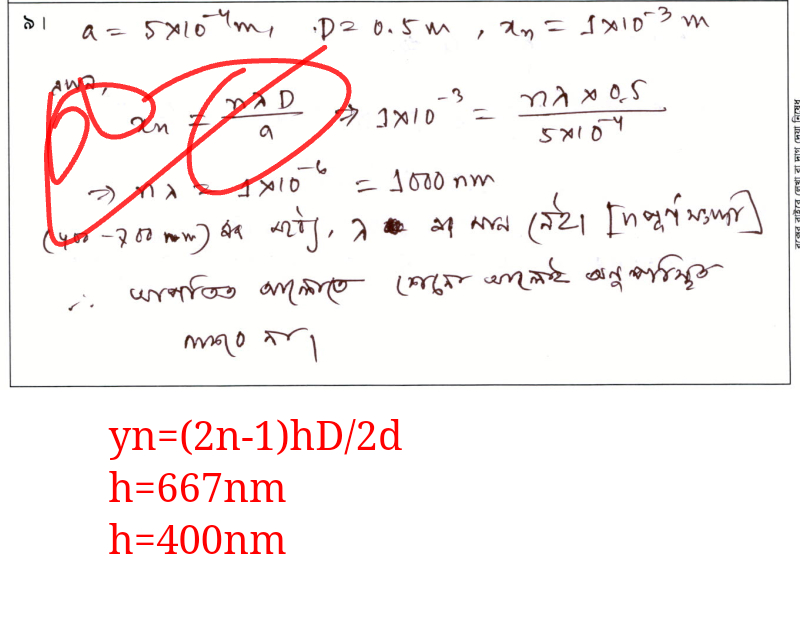 ৯।
a = 5×10⁻⁴m, D = 0.5 m, xₙ = 1×10⁻³ m
xₙ = nλD/a ⇒ 1×10⁻³ = nλ × 0.5 / 5×10⁻⁴
⇒ nλ = 1×10⁻⁶ = 1000 nm
(400 - 700 nm) এর মধ্যে, λ এর মান নেই। [n পূর্ণ সংখ্যা]
∴ আপতিত আলোতে কোনো আলোই অনুপস্থিত
না।
yn=(2n-1)hD/2d
h=667nm
h=400nm